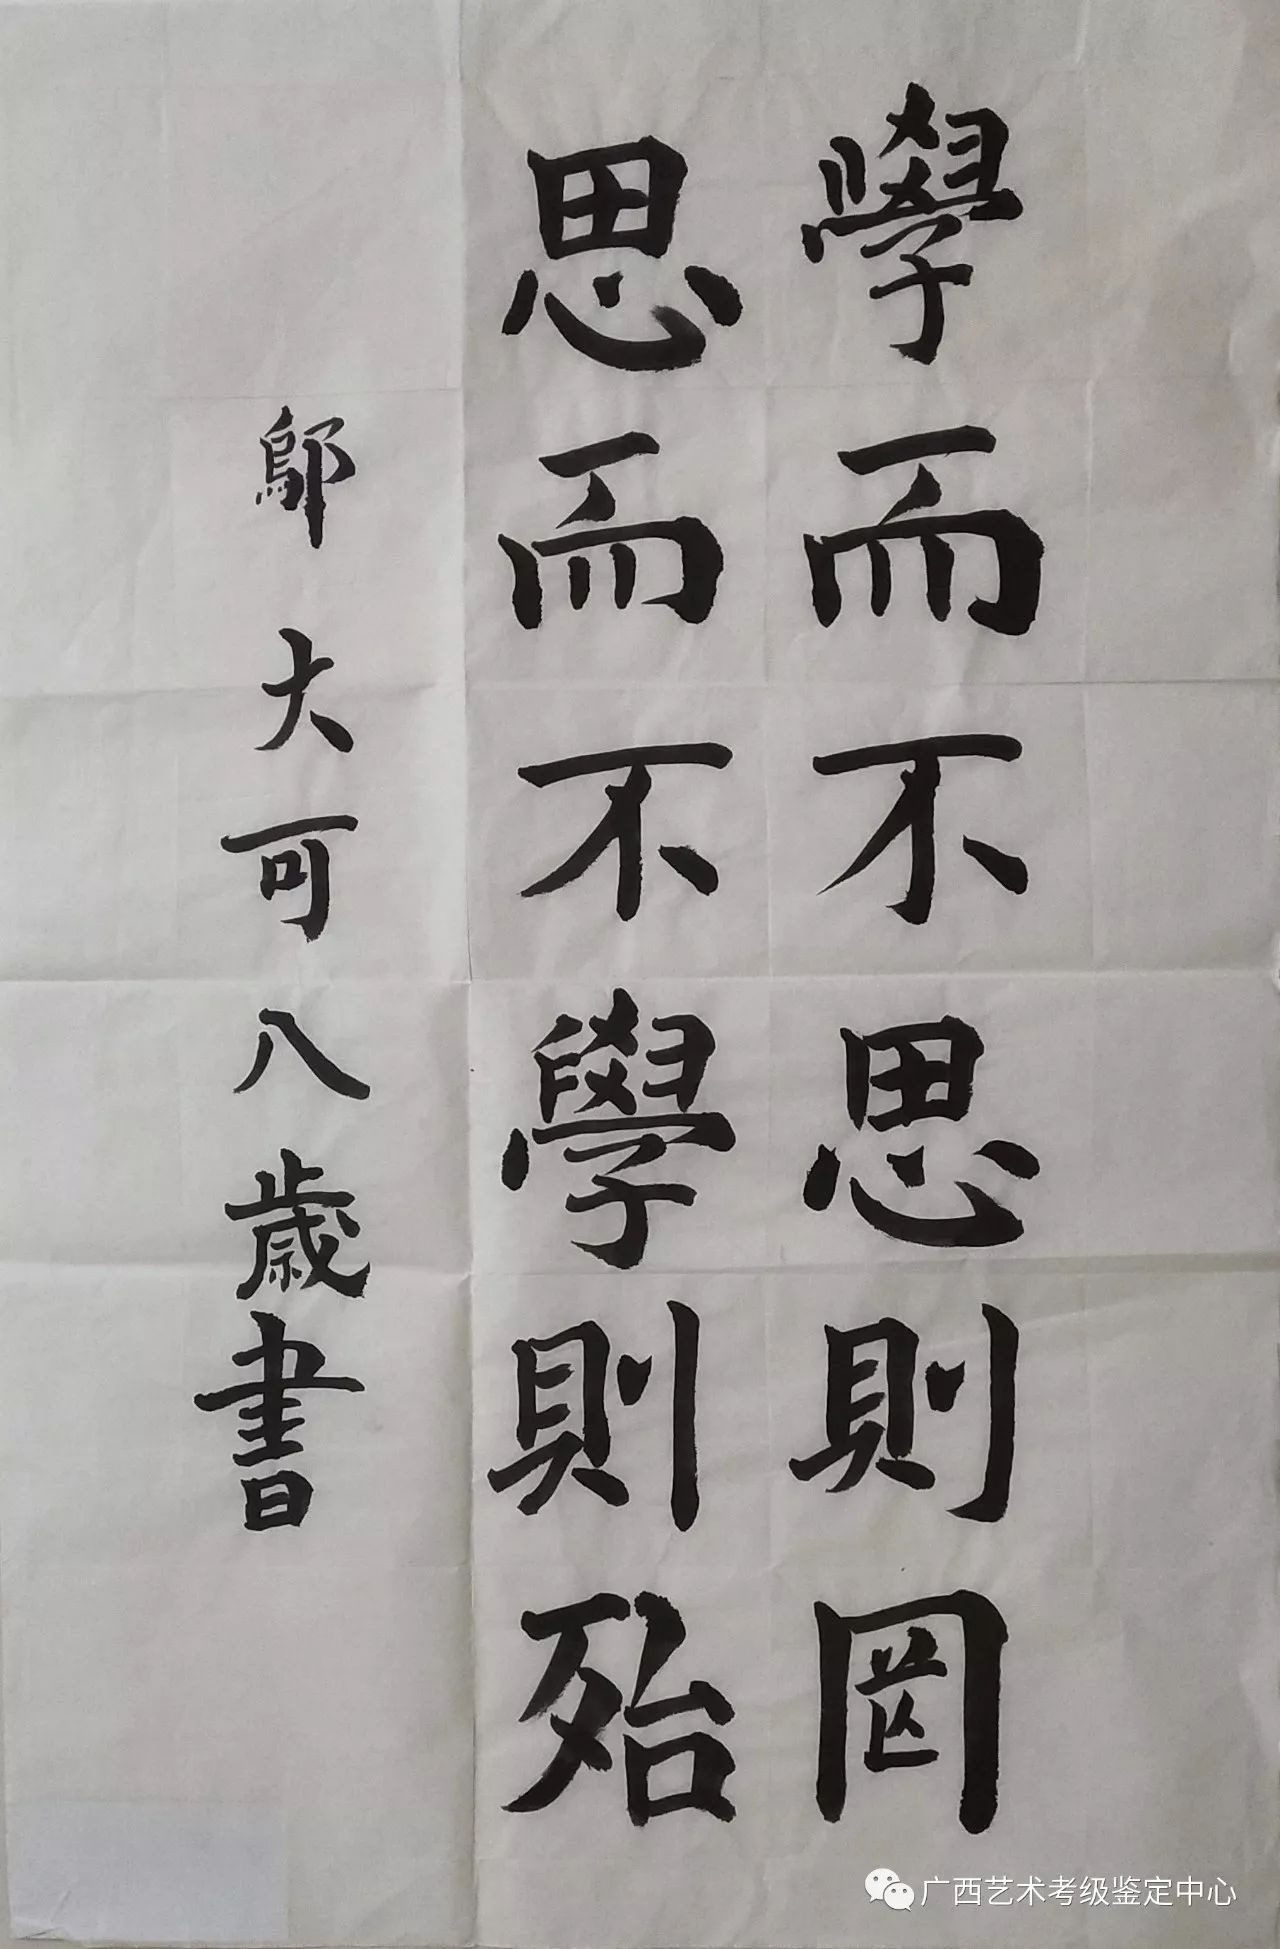 學而不思則罔
思而不學則殆
鄔大可八歲書
广西艺术考级鉴定中心